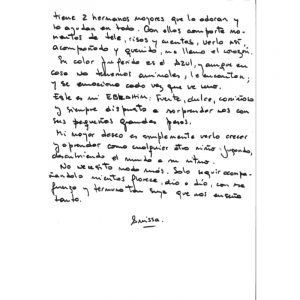 tiene 2 hermanos mayores que lo adoran y
lo ayudan en todo. Con ellos comparte mo-
mentos de tele, risas y cuentos, verlo así
acompañado y querido, me llena el corazón.
Su color preferido es el Azul, y aunque en
casa no tenemos animales, le encantan;
y se emociona cada vez que ve uno.
Este es mi EBRAHIM. Fuerte, dulce, cariñoso
y siempre dispuesto a sorprendernos con
sus pequeños grandes pasos.
Mi mayor deseo es simplemente verlo crecer
y aprender como cualquier otro niño: jugando,
descubriendo el mundo a su ritmo.
No necesito nada más. Solo seguir acompa-
ñándolo mientras florece, día a día, con esa
fuerza y ternura tan suya que nos enseña
tanto.